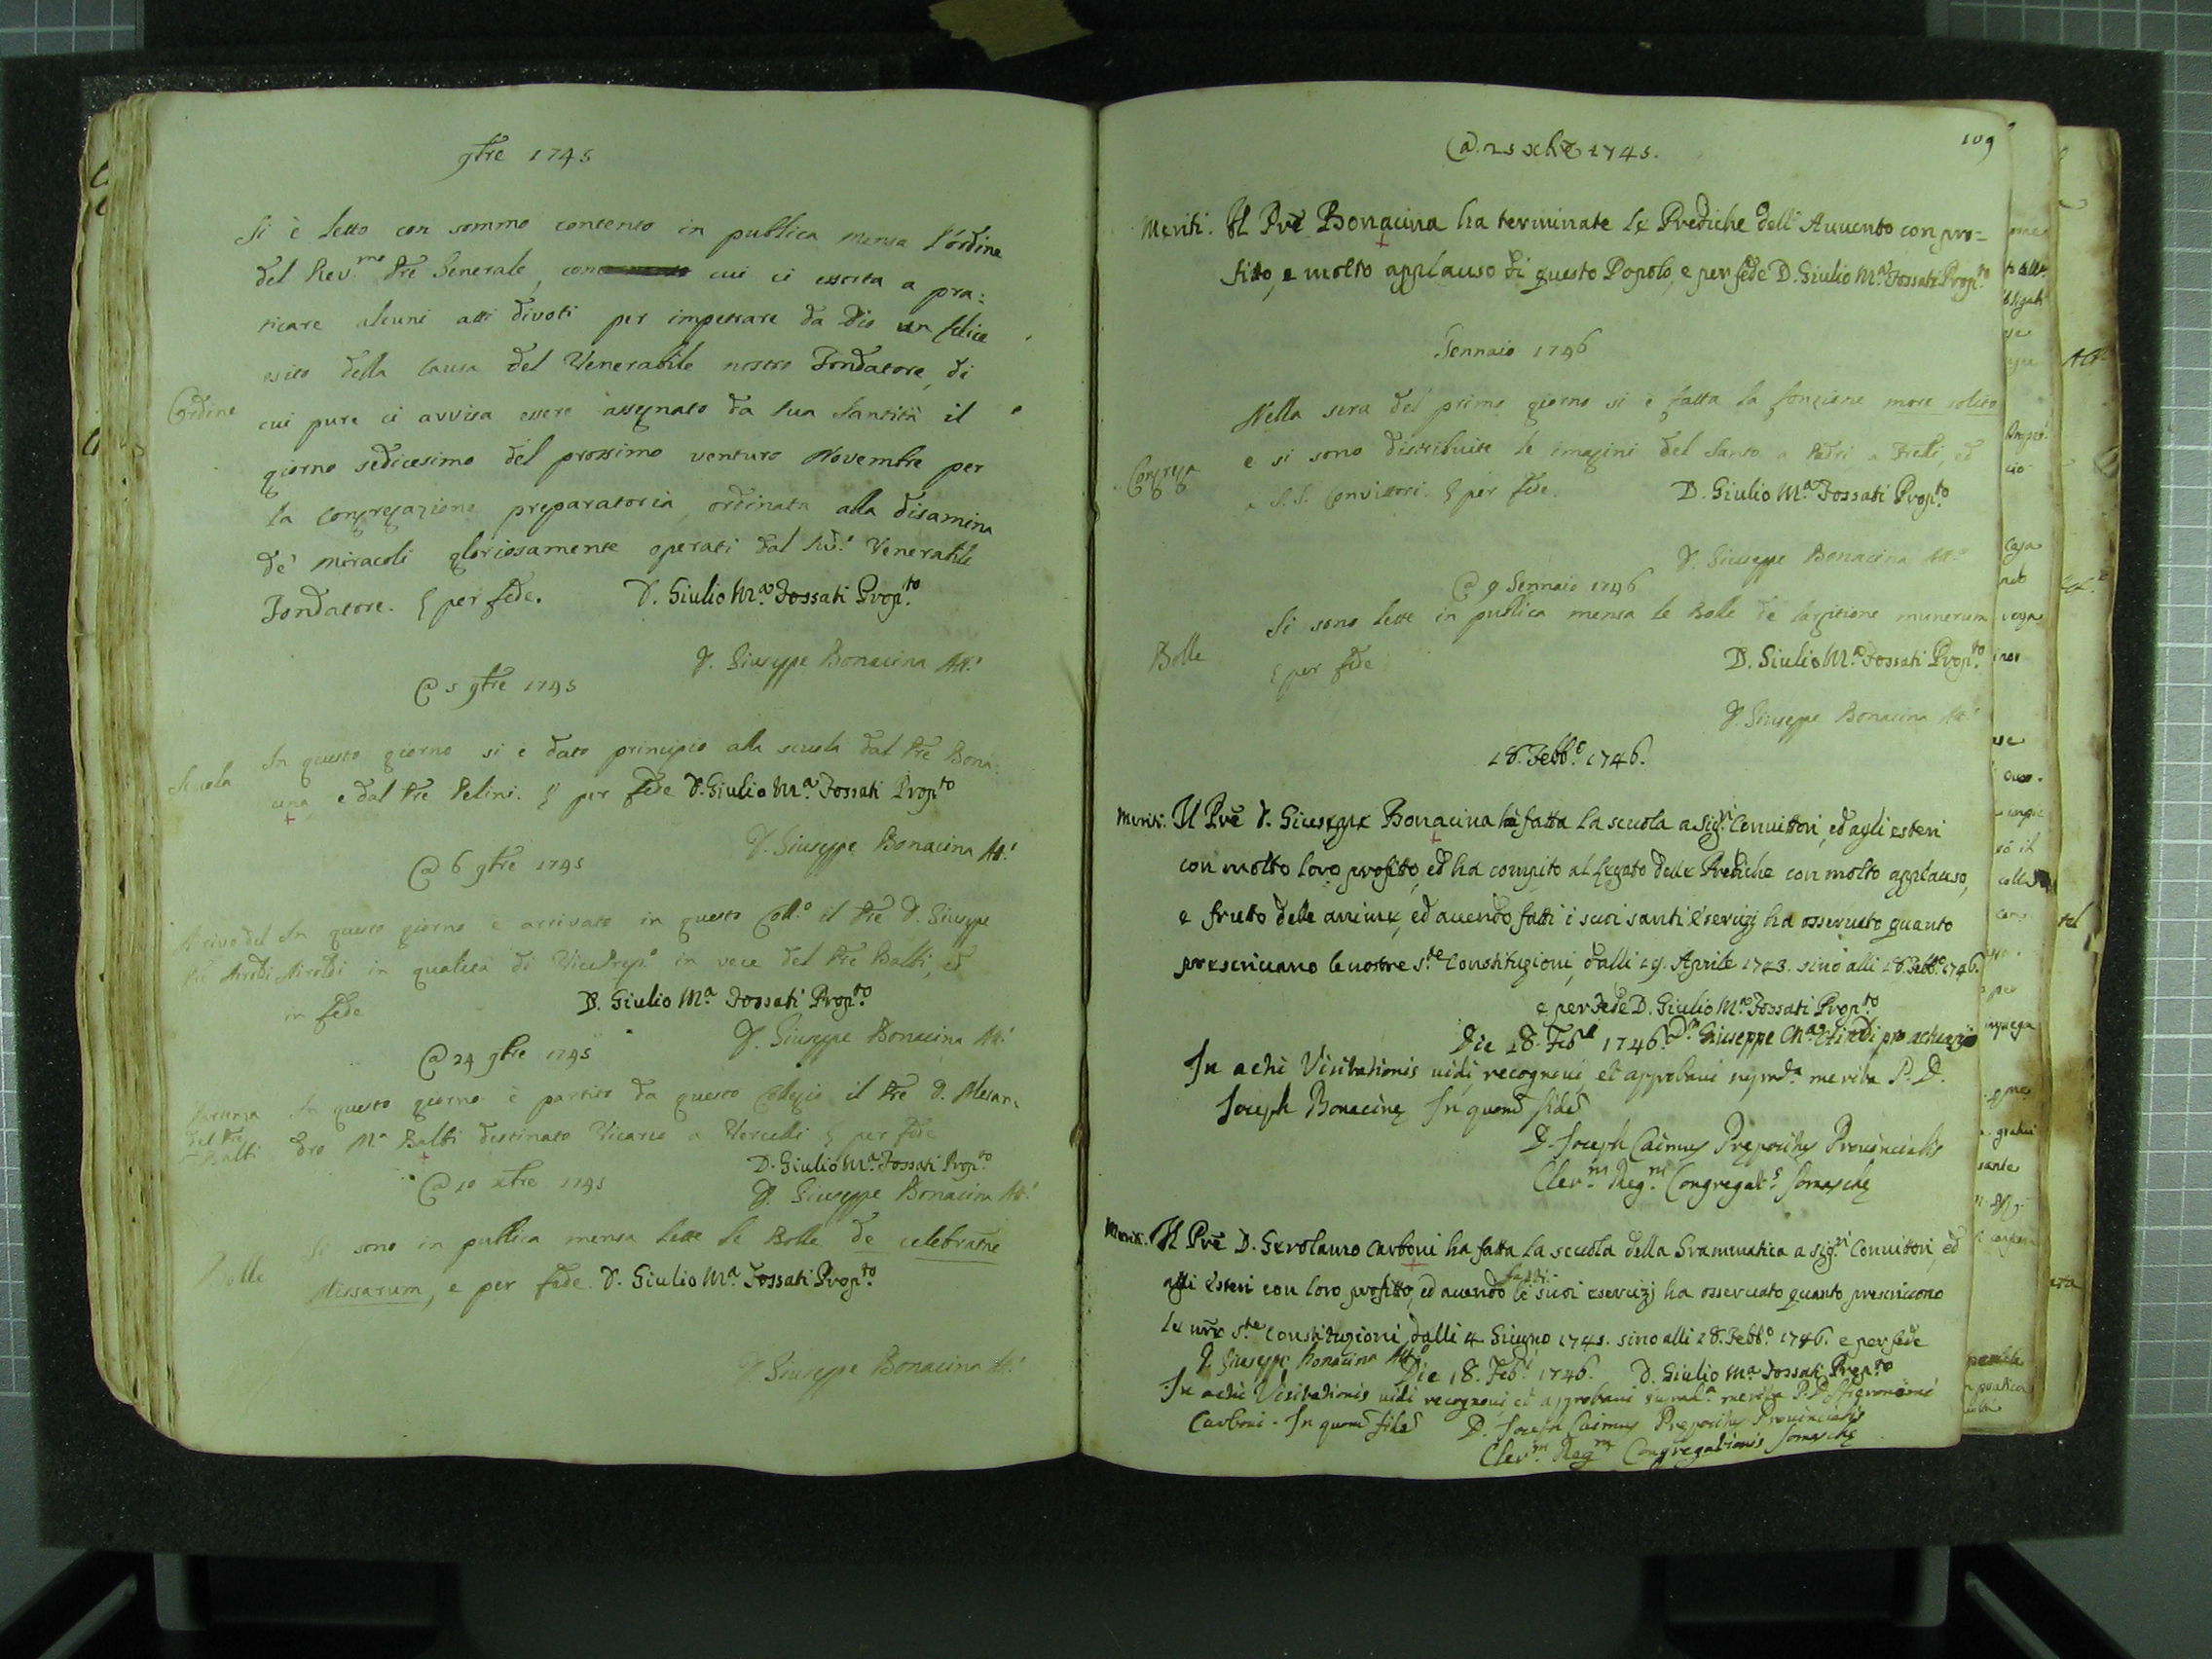 9bre 1745
Si è letto con sommo contento in publica mensa l'ordine
del Rev.mo Pre Generale, con cui ci essorta a pra:
ticare alcuni atti divoti per impetrare da Dio un felice
esito della Causa del Venerabile nostro Fondatore, di
Ordine
cui pure ci avvisa essere assegnato da Sua Santità il
giorno sedicesimo del prossimo venturo Novembre per
la Congregazione preparatoria, ordinata alla disamina
de' miracoli gloriosamente operati dal sud.o Venerabile
Fondatore. E per fede. D. Giulio M.a Fossati Prop.to
D. Giuseppe Bonacina Att.o
@ 5 9bre 1745
Scuola
In questo giorno si è dato principio alla scuola dal Pre Bona:
cina, e dal Pre Pelini. E per fede D. Giulio M.a Fossati Prop.to
D. Giuseppe Bonacina Att.o
@ 6 9bre 1745
Arivo del In questo giorno è arrivato in questo Coll.o il Pre D. Giuseppe
Pre Airoldi Airoldi in qualità di VicePrep.o in vece del Pre Balbi, ed
in fede D. Giulio M.a Fossati Prop.to
D. Giuseppe Bonacina Att.o
@ 24 9bre 1745
Partenza In questo giorno è partito da questo Collegio il Pre D. Alesan:
del Pre
Balbi dro M.a Balbi destinato Vicario a Vercelli E per fede
D. Giulio M.a Fossati Prop.to
@ 10 xbre 1745 D. Giuseppe Bonacina Att.o
Bolle
Si sono in publica mensa lette le Bolle de celebratne
Missarum, e per fede. D. Giulio M.a Fossati Prop.to
D. Giuseppe Bonacina Att.o
109
@. 25 xbre 1745.
Meriti. Il Pre Bonacina ha terminate le Prediche dell'Avvento con pro=
fitto, e molto applauso di questo Popolo, e per fede D. Giulio M.a Fossati Prop.to
Gennaio 1746
Nella sera del primo giorno si è fatta la fonzione more solito
Congrega
e si sono distribuite le imagini del Santo a Padri a Frelli, ed
a S.S. Convittori. E per fede. D. Giulio M.a Fossati Prop.to
D. Giuseppe Bonacina Att.o
@ 9 Gennaio 1746
Bolle
Si sono lette in publica mensa le Bolle de largitione munerum
E per fede D. Giulio M.a Fossati Prop.to
D. Giuseppe Bonacina Att.o
18. Febb.o 1746.
Meriti. Il Pre D. Giuseppe Bonacina hà fatta la scuola a Sig.ri Convittori, ed agli esteri
con molto loro profitto, ed ha compito al legato delle Prediche con molto applauso,
e frutto delle anime, ed avendo fatti i suoi santi Esercizj ha osservato quanto
prescrivano le nostre S.te Constituzioni, dalli 19. Aprile 1743. sino alli 18. Febb.o 1746.
e per fede D. Giulio M.a Fossati Prop.to
Die 18. Feb.ii 1746. D. Giuseppe M.a Airoldi pro actuario
In actu Visitationis vidi, recognovi, et approbavi supradˢ.a merita P. D.
Joseph Bonacinę In quorũ fidẽ
D. Joseph Caimus Prępositus Provincialis
Cler.m Reg.m Congregat.s Somaschę
Meriti. Il Pre D. Gerolamo Carboni ha fatta la scuola della Grammatica a Sig.ri Convittori, ed
agli Esteri con loro profitto, ed avendo fatti li suoi esercizj ha osservato quanto prescrivono
le nre S.te Constituzioni, dalli 4 Giugno 1745. sino alli 18. Febb.o 1746. e per fede
D. Giuseppe Bonacina Att.o Die 18. Feb.i 1746. D. Giulio M.a Fossati Prep.to
In actu Visitationis vidi recognovi, et approbavi suprad.a merita P. D. Hieronimi
Carboni - In quorũ fidẽ D. Joseph Caimus Prępositus Provincialis
Cler.m Reg.m Congregationis Somaschę